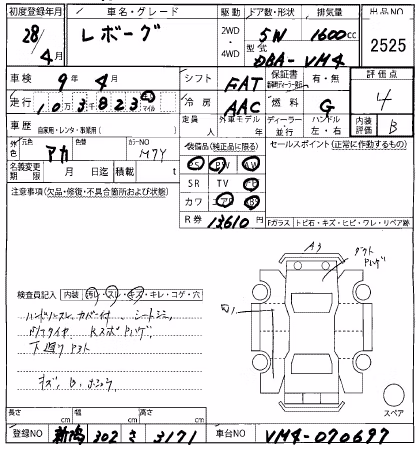 初度登録年月 車名・グレード 駆動 ドア数・形状 排気量 出品NO
28/4月 レボーグ 2WD・4WD 5W 1600cc 2525
型式 DBA-VM4
車検 9年4月 シフト FAT 保証書 有・無 評価点
走行 10万3823 km マイル 冷房 AAC 燃料 G 4
車歴 自家用・レンタ・事業用( ) 定員 人 外車モデル 年 ディーラー・並行 ハンドル 左・右 内装評価 B
外色 元色 アカ 色替 カラーNO M7Y 装備品(純正品に限る) セールスポイント(正常に作動するもの)
名義変更期限 月 日迄 積載 t PS PW AW
注意事項(欠品・修復・不具合箇所および状態) SR TV
カワ エアB
R券 13610円 Fガラス トビ石・キズ・ヒビ・ワレ・リペア跡
A3
検査員記入 内装 汚レ・スレ・キズ・キレ・コゲ・穴
ハンドルスレ カバー付、シートシミ
下廻りサビ
スペア
長さ cm 幅 cm 高さ cm
登録NO 新潟 302 さ 3171 車台NO VM4-070697